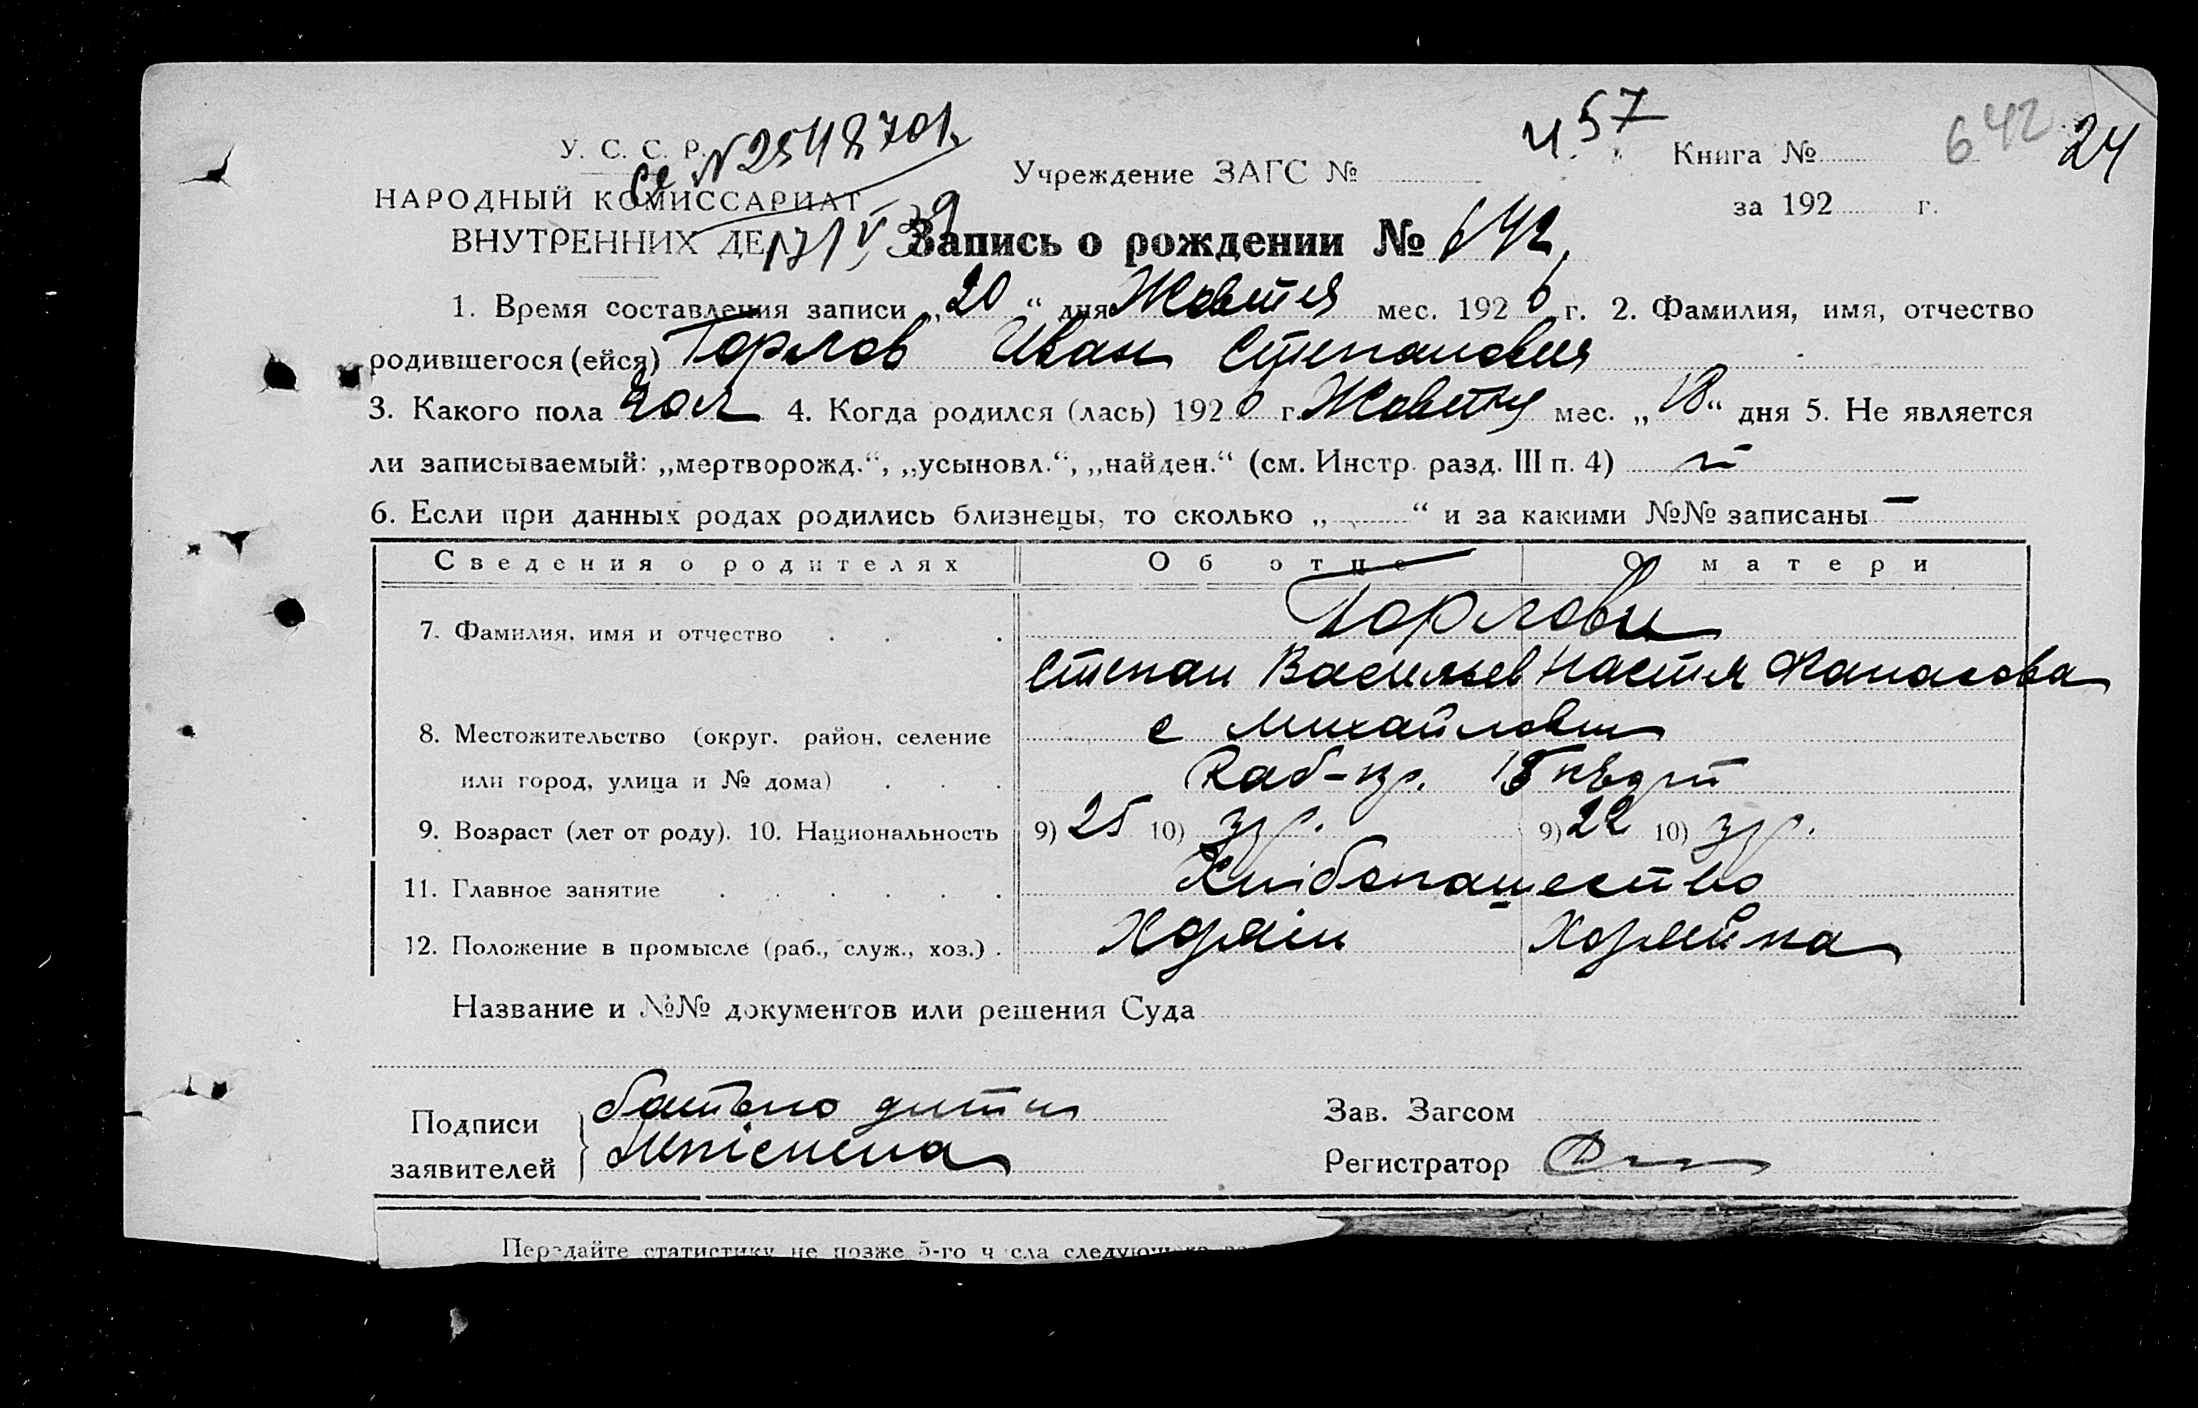 У. С. С. Р.
НАРОДНЫЙ КОМИССАРИАТ
ВНУТРЕННИХ ДЕЛ
№ 2548701
Учреждение ЗАГС №
57
Книга №
642
24
за 192 г.
Запись о рождении № 642
1. Время составления записи „20“ дня Жовтня мес. 1926 г. 2. Фамилия, имя, отчество
родившегося (ейся) Горлов Иван Степанович
3. Какого пола чол 4. Когда родился (лась) 1926 г. Жовтня мес. „18“ дня 5. Не является
ли записываемый: „мертворожд.“, „усыновл.“, „найден.“ (см. Инстр. разд. III п. 4)
6. Если при данных родах родились близнецы, то сколько „ “ и за какими №№ записаны —
Сведения о родителях Об отце О матери
7. Фамилия, имя и отчество Горлови
Степан Васильев Настя Панасова
8. Местожительство (округ, район, селение с Михайловки
или город, улица и № дома)
9. Возраст (лет от роду). 10. Национальность 9) 25 10) 9) 22 10)
11. Главное занятие Хлібопашество
12. Положение в промысле (раб., служ., хоз.) Хозяїн Хозяйка
Название и №№ документов или решения Суда
Подписи
заявителей
батько дитини
Неписьмена
Зав. Загсом
Регистратор
Передайте статистику не позже 5-го числа следующего